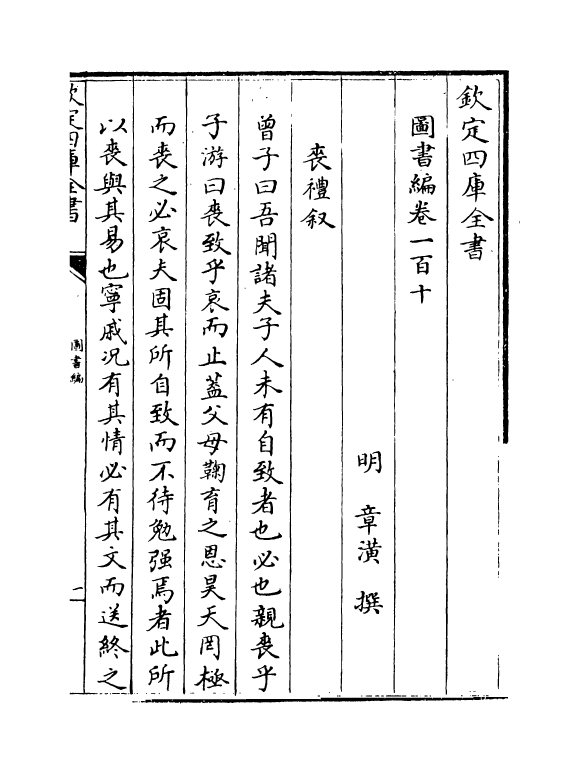 欽定四庫全書
圖書編卷一百十
明 章潢 撰
喪禮叙
曾子曰吾聞諸夫子人未有自致者也必也親喪乎
子游曰喪致乎哀而止蓋父母鞠育之恩昊天罔極
而喪之必哀夫固其所自致而不待勉强焉者此所
以喪與其易也寧戚况有其情必有其文而送終之
欽定四庫全書
圖書編